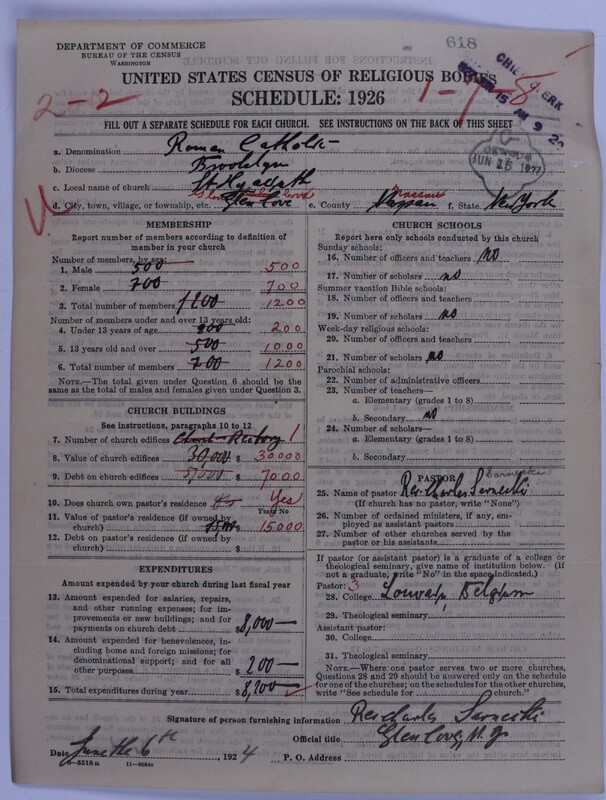 618
DEPARTMENT OF COMMERCE
BUREAU OF THE CENSUS
WASHINGTON
UNITED STATES CENSUS OF RELIGIOUS BODIES
SCHEDULE: 1926
2-2
1-7-8
CHIEF CLERK
JUN 15 1927
FILL OUT A SEPARATE SCHEDULE FOR EACH CHURCH. SEE INSTRUCTIONS ON THE BACK OF THIS SHEET
a. Denomination Roman Catholic
b. Diocese Brooklyn
c. Local name of church St Hyacinth
d. City, town, village, or township, etc. Glen Cove e. County Nassau f. State New York
MEMBERSHIP
Report number of members according to definition of
member in your church
Number of members, by sex:
1. Male 500 500
2. Female 700 700
3. Total number of members 1200 1200
Number of members under and over 13 years old:
4. Under 13 years of age 200 200
5. 13 years old and over 500 1000
6. Total number of members 700 1200
NOTE.—The total given under Question 6 should be the
same as the total of males and females given under Question 3.
CHURCH BUILDINGS
See instructions, paragraphs 10 to 12
7. Number of church edifices Church Rectory 1
8. Value of church edifices 30,000 $ 30000
9. Debt on church edifices $ 7000
10. Does church own pastor's residence yes Yes
Yes or No
11. Value of pastor's residence (if owned by
church) $ 15000
12. Debt on pastor's residence (if owned by
church) $
EXPENDITURES
Amount expended by your church during last fiscal year
13. Amount expended for salaries, repairs,
and other running expenses; for im-
provements or new buildings; and for
payments on church debt $8,000—
14. Amount expended for benevolences, in-
cluding home and foreign missions; for
denominational support; and for all
other purposes $200—
15. Total expenditures during year $8,200—
CHURCH SCHOOLS
Report here only schools conducted by this church
Sunday schools:
16. Number of officers and teachers no
17. Number of scholars no
Summer vacation Bible schools:
18. Number of officers and teachers
19. Number of scholars no
Week-day religious schools:
20. Number of officers and teachers
21. Number of scholars no
Parochial schools:
22. Number of administrative officers
23. Number of teachers—
a. Elementary (grades 1 to 8)
b. Secondary no
24. Number of scholars—
a. Elementary (grades 1 to 8)
b. Secondary
PASTOR
25. Name of pastor Rev Charles Sarnecki
(If church has no pastor, write "None")
26. Number of ordained ministers, if any, em-
ployed as assistant pastors
27. Number of other churches served by the
pastor or his assistants
If pastor (or assistant pastor) is a graduate of a college or
theological seminary, give name of institution below. (If
not a graduate, write "No" in the space indicated.)
Pastor: 3
28. College Louvain, Belgium
29. Theological seminary
Assistant pastor:
30. College
31. Theological seminary
NOTE.—Where one pastor serves two or more churches,
Questions 28 and 29 should be answered only on the schedule
for one of the churches; on the schedules for the other churches,
write "See schedule for church."
Signature of person furnishing information Rev Charles Sarnecki
Official title Glen Cove, N.Y.
Date June the 6th, 1924 P. O. Address